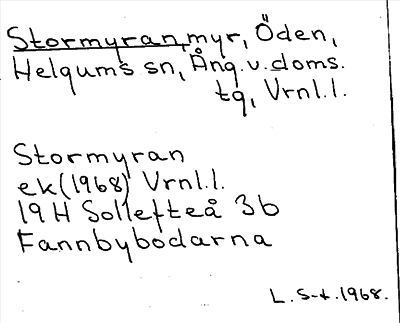 Stormyran, myr, Öden,
Helgums sn, Ång. v. doms.
tg, Vrnl.l.
Stormyran
ek (1968) Vrnl.l.
19 H Sollefteå 3b
Fannbybodarna
L. S-t. 1968.